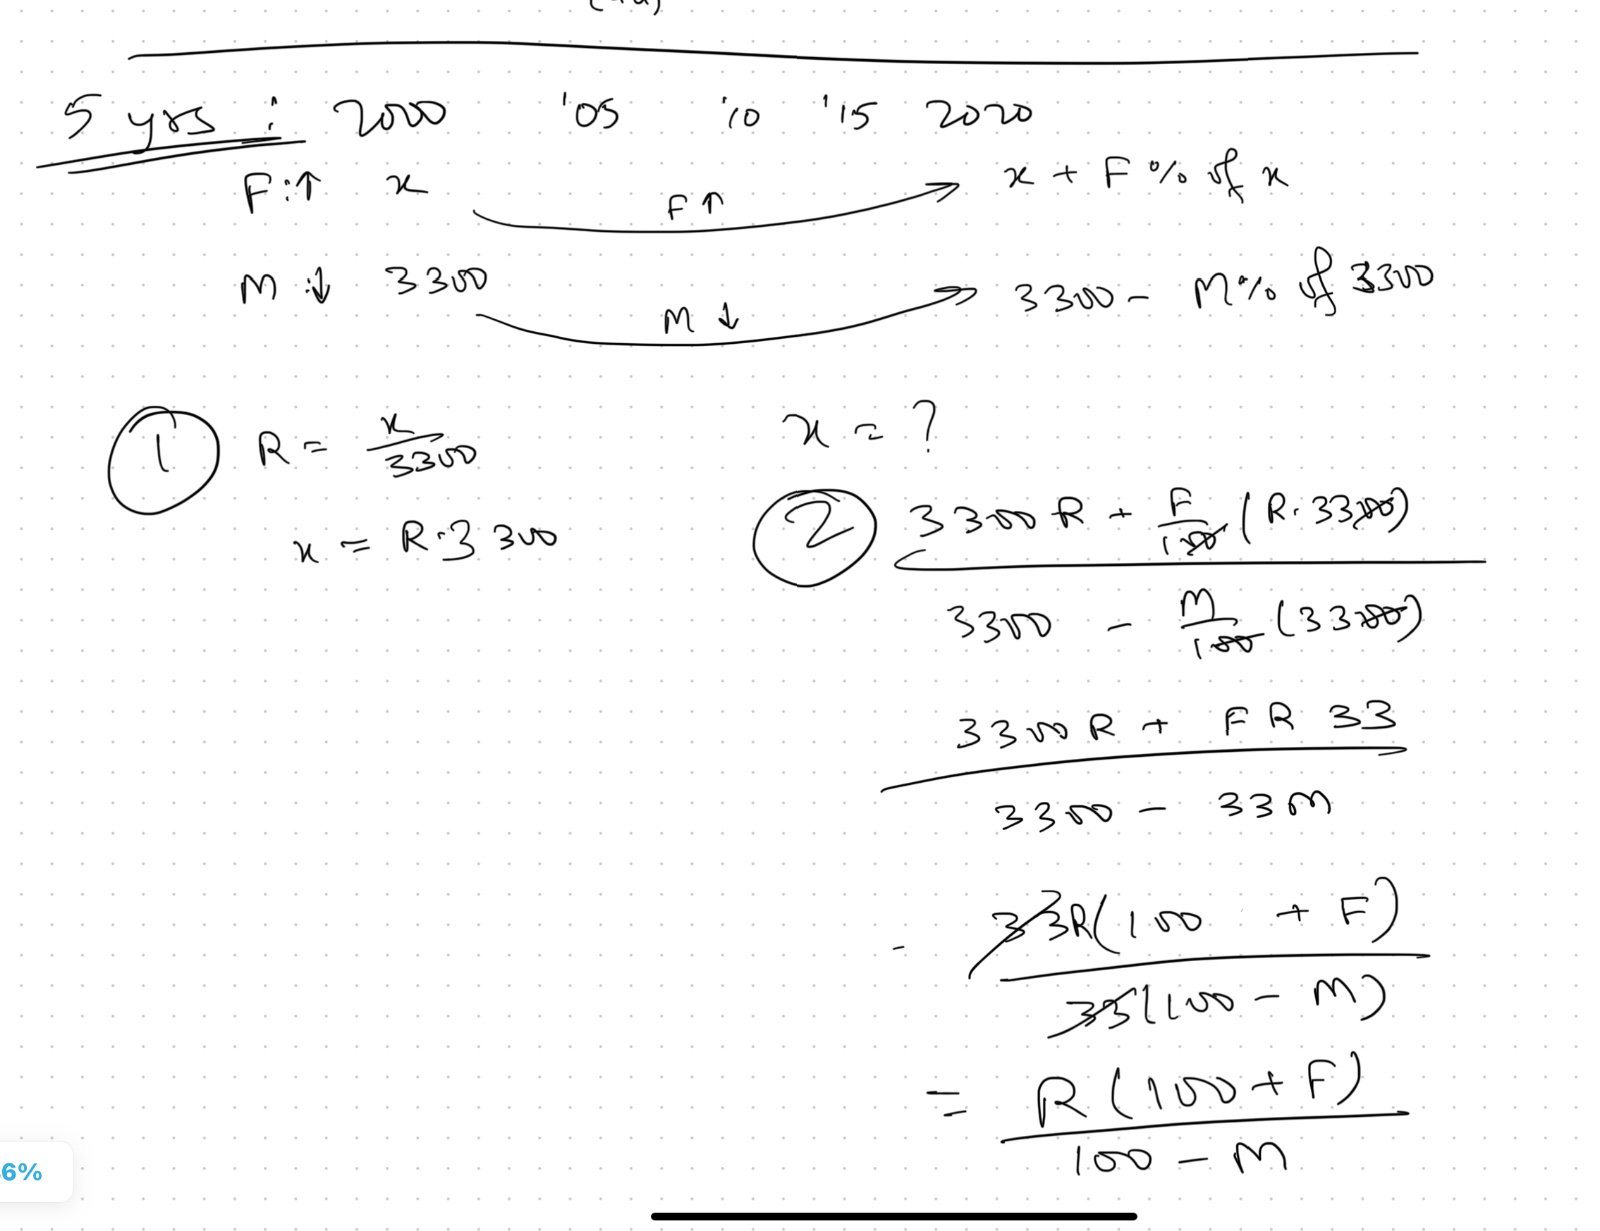 5 yrs : 2000 '05 '10 '15 2020
F:↑ x F↑ x + F% of x
M:↓ 3300 M↓ 3300 - M% of 3300
① R = x/3300
x = R·3300
x = ?
② 3300R + F/100 (R·3300)
3300 - M/100 (3300)
3300R + FR 33
3300 - 33M
- 33R(100 + F)
33(100 - M)
= R(100+F)
100 - M
6%